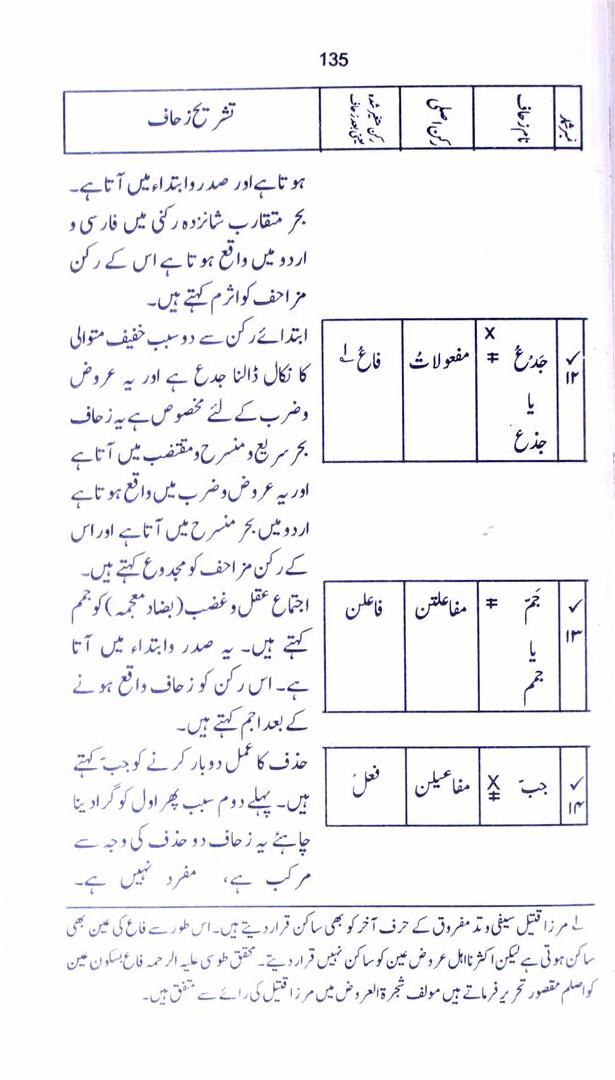 135
نمبر شمار
نام زحاف
رکن اصلی
رکن متغیر شدہ یعنی بعد زحاف
تشریح زحاف
ہوتا ہے اور صدر و ابتداء میں آتا ہے۔
بحر متقارب شانزدہ رکنی میں فارسی و
اردو میں واقع ہوتا ہے اس کے رکن
مزاحف کو اثرم کہتے ہیں۔
✓ ۱۲
جَدْعُ یا جذع
X ‡
مفعولاتُ
فاعُ لے
ابتدائے رکن سے دو سبب خفیف متوالی
کا نکال ڈالنا جدع ہے اور یہ عروض
و ضرب کے لئے مخصوص ہے یہ زحاف
بحر سریع و منسرح و مقتضب میں آتا ہے
اور یہ عروض و ضرب میں واقع ہوتا ہے
اردو میں بحر منسرح میں آتا ہے اور اس
کے رکن مزاحف کو مجدوع کہتے ہیں۔
✓ ۱۳
جَمّ یا جمم
‡
مفاعلتن
فاعلن
اجتماع عقل و غضب (بضاد معجمہ) کو جمم
کہتے ہیں۔ یہ صدر وابتداء میں آتا
ہے۔ اس رکن کو زحاف واقع ہونے
کے بعد اجم کہتے ہیں۔
✓ ۱۴
جبّ
X ‡
مفاعیلن
فعلُ
حذف کا عمل دوبار کرنے کو جبّ کہتے
ہیں۔ پہلے دوم سبب پھر اول کو گرا دینا
چاہئے یہ زحاف دو حذف کی وجہ سے
مرکب ہے، مفرد نہیں ہے۔
لے مرزا قتیل سیفی وتد مفروق کے حرف آخر کو بھی ساکن قرار دیتے ہیں۔ اس طور سے فاع کی عین بھی
ساکن ہوتی ہے لیکن اکثر نا اہل عروض عین کو ساکن نہیں قرار دیتے۔ محقق طوسی علیہ الرحمہ فاع بسکون عین
کو اصلم مقصور تحریر فرماتے ہیں مولف شجرۃ العروض میں مرزا قتیل کی رائے سے متفق ہیں۔